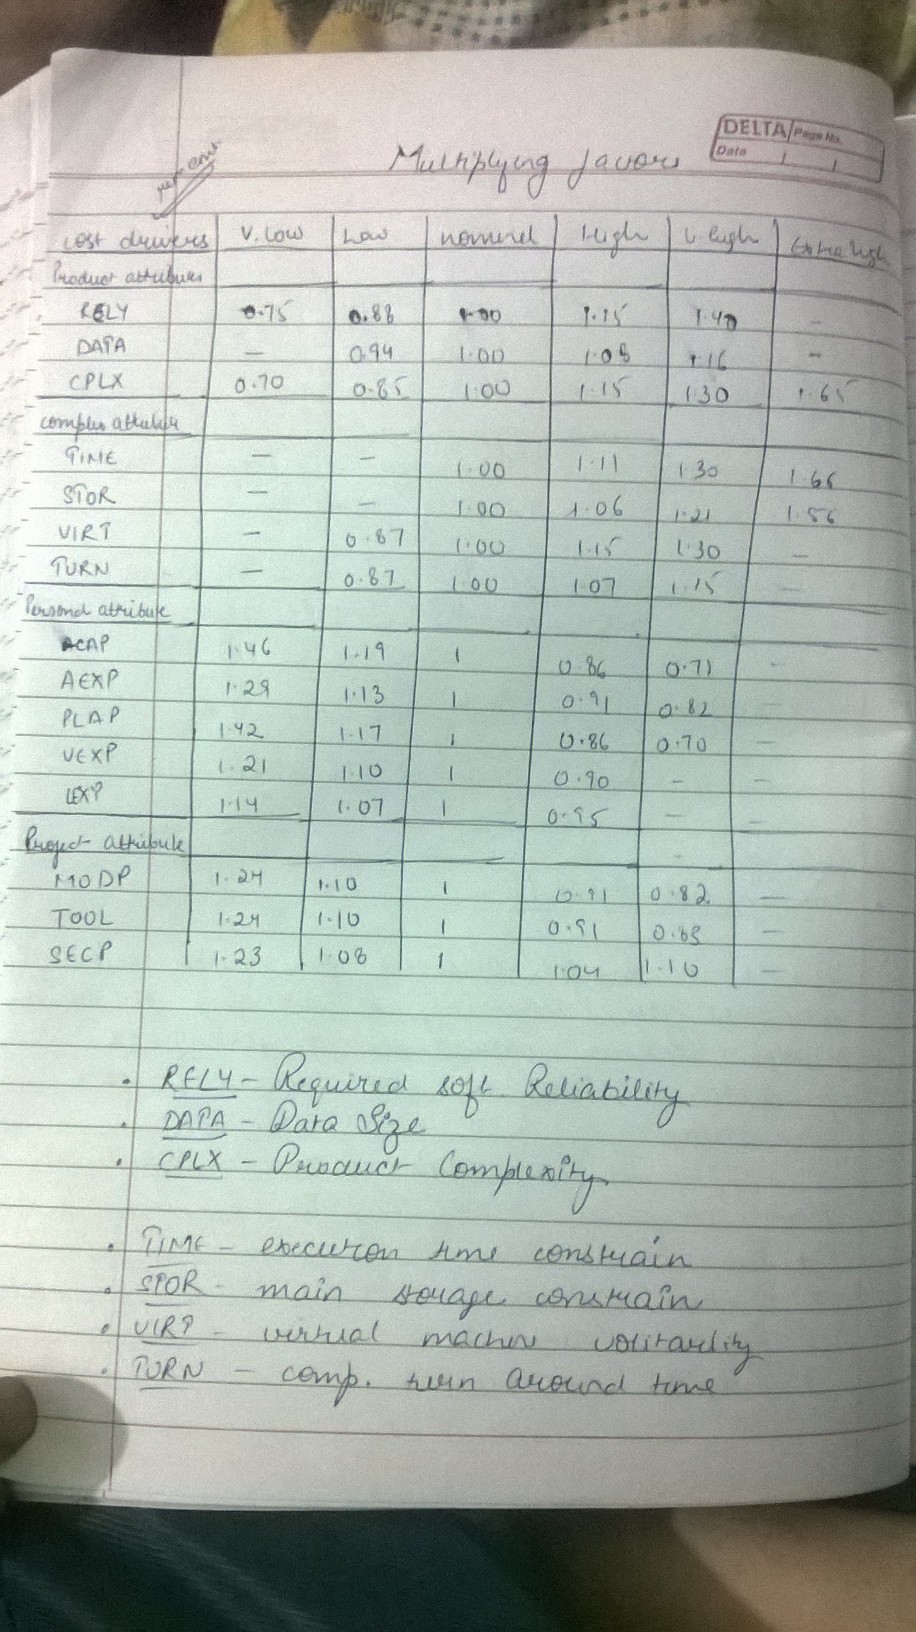 DELTA Page No.
Date / /
Multiplying favors
cost drivers V. Low Low nominal High V. high Extra high
Product attributes
RELY 0.75 0.88 1.00 1.15 1.40 -
DATA - 0.94 1.00 1.08 1.16 -
CPLX 0.70 0.85 1.00 1.15 1.30 1.65
TIME - - 1.00 1.11 1.30 1.66
STOR - - 1.00 1.06 1.21 1.56
VIRT - 0.87 1.00 1.15 1.30 -
TURN - 0.87 1.00 1.07 1.15 -
Personal attribute
ACAP 1.46 1.19 1 0.86 0.71 -
AEXP 1.29 1.13 1 0.91 0.82 -
PCAP 1.42 1.17 1 0.86 0.70 -
VEXP 1.21 1.10 1 0.90 - -
LEXP 1.14 1.07 1 0.95 - -
Project attribute -
MODP 1.24 1.10 1 0.91 0.82 -
TOOL 1.24 1.10 1 0.91 0.83 -
SECP 1.23 1.08 1 1.04 1.10 -
• RELY - Required soft Reliability
• DATA - Data Size
• CPLX - Product Complexity
• TIME - execution time constrain
• STOR - main storage constrain
• VIRT - virtual machine
• TURN - comp. turn around time